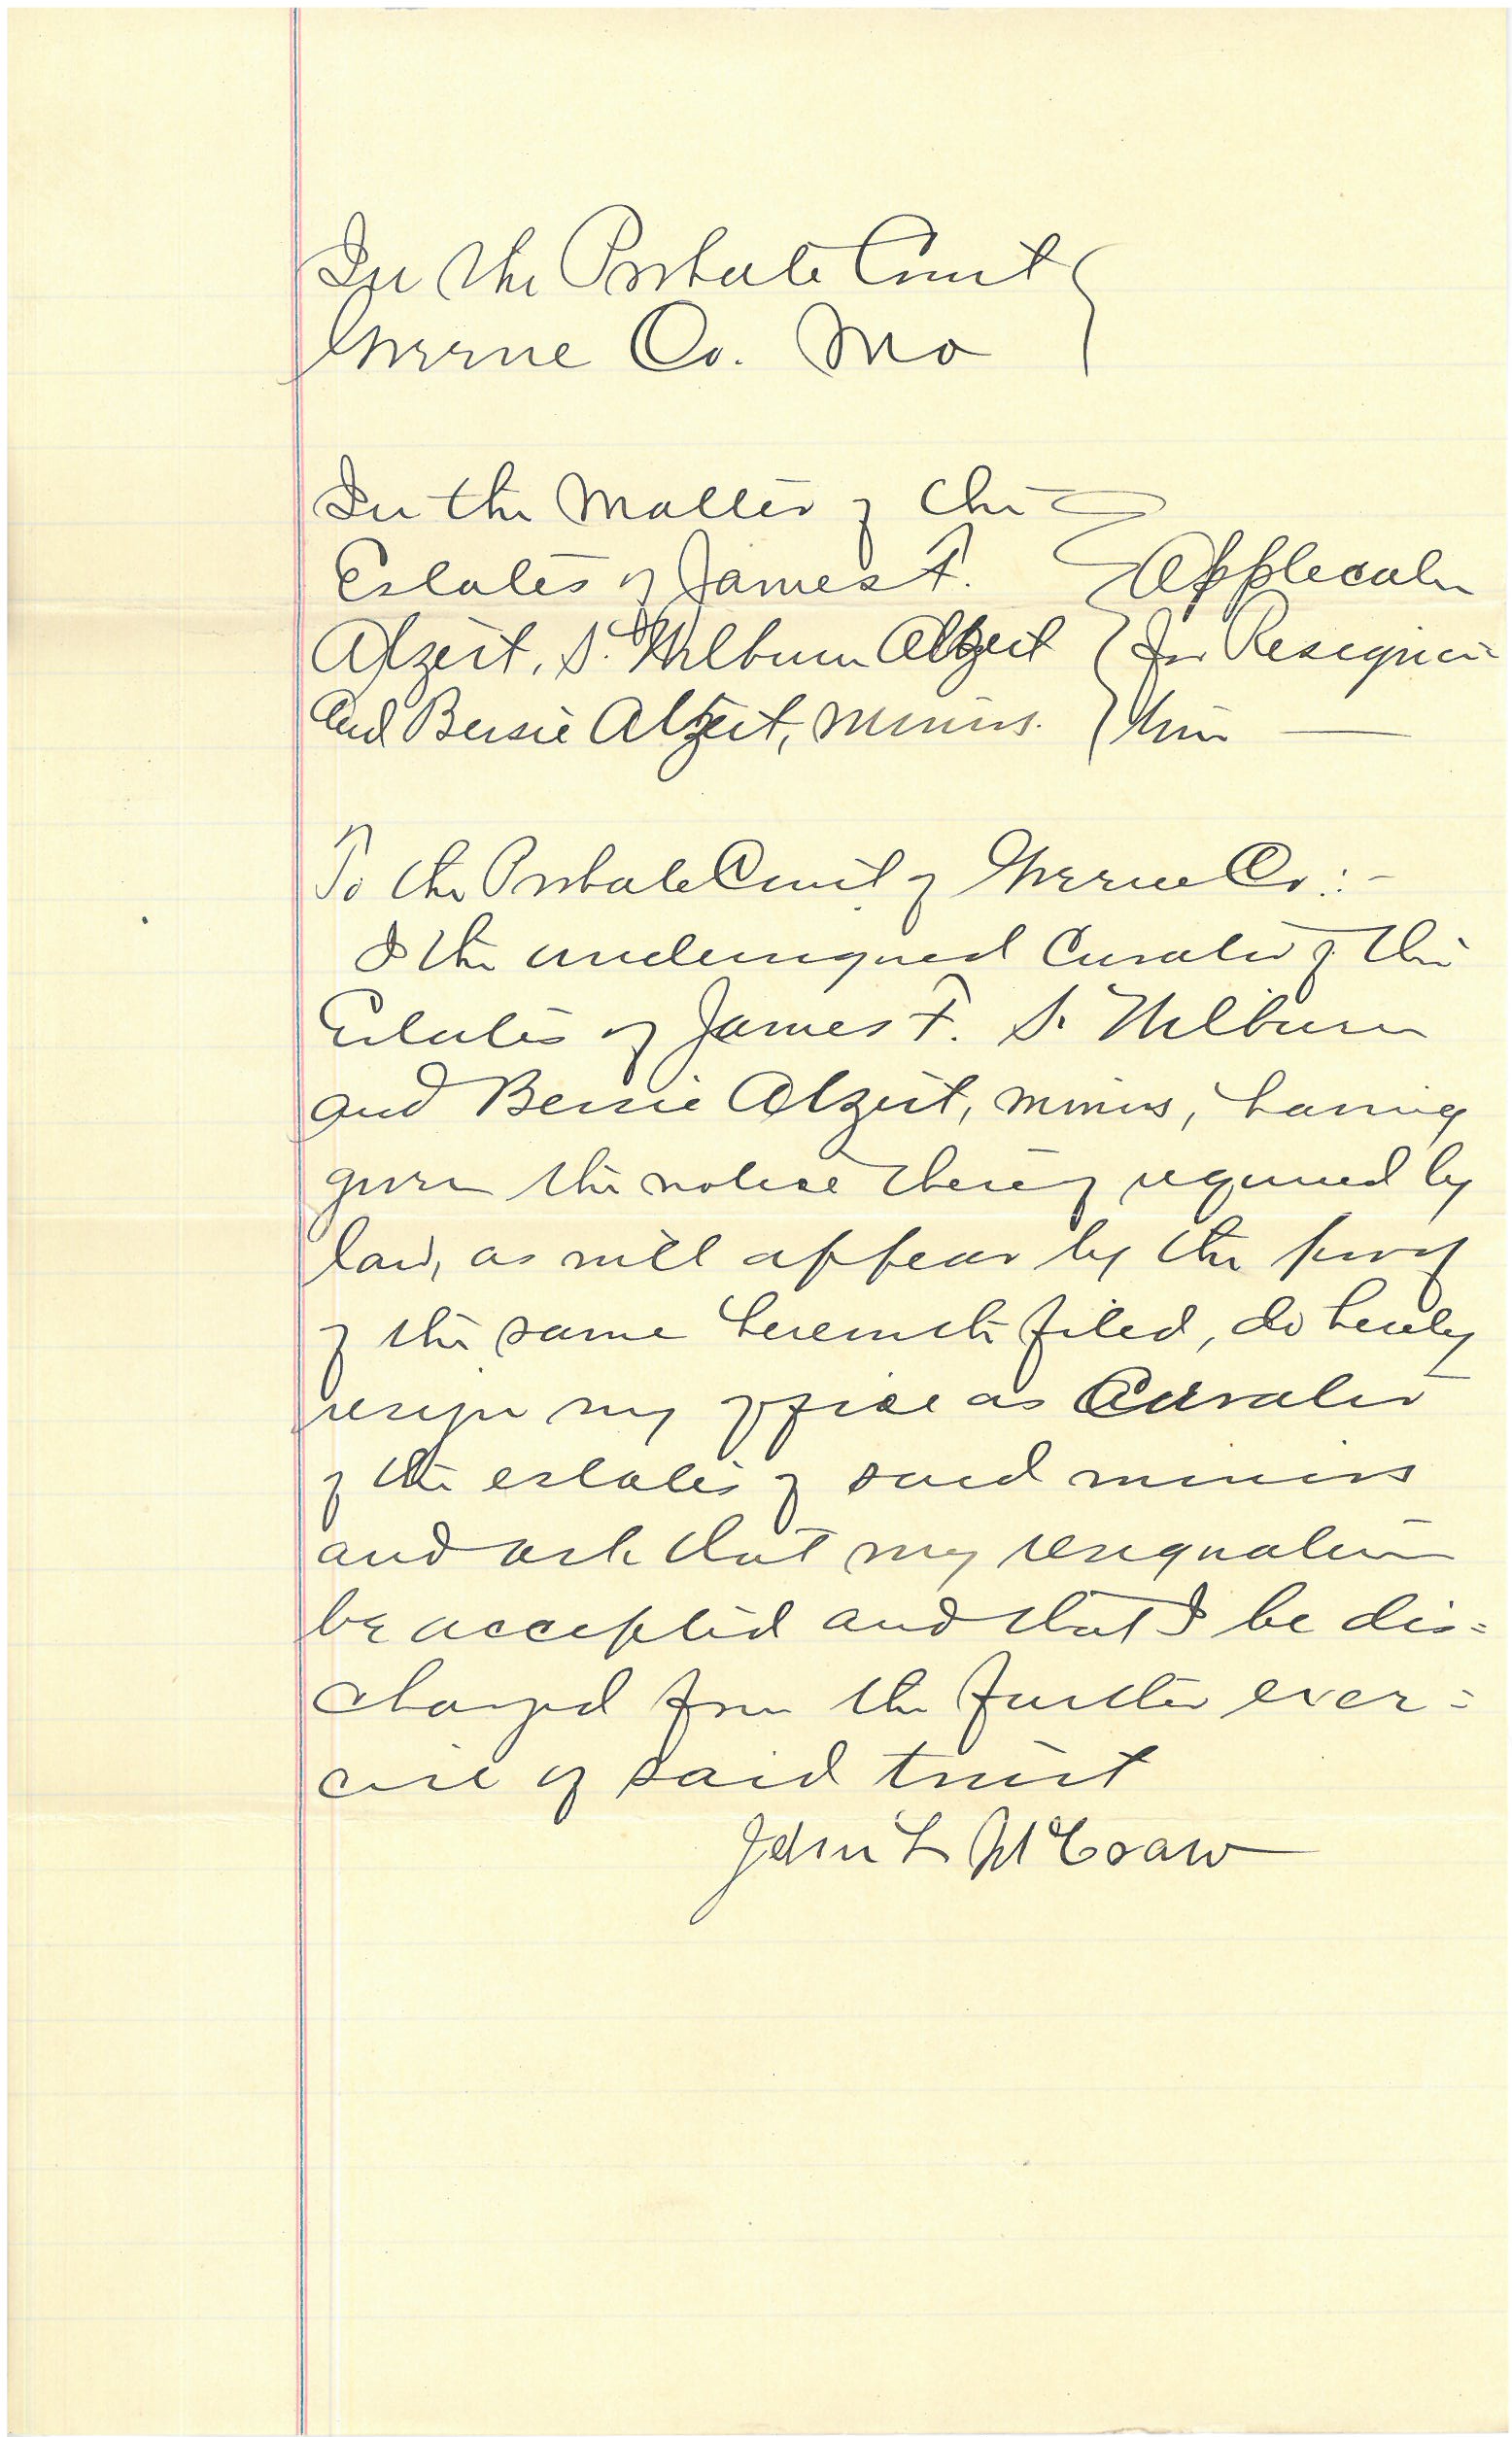 In the Probate Court
Greene Co. Mo
In the Matter of the
Estates of James F.
Alzeit, S. Wilburn Alzeit
and Bessie Alzeit, minors.
Application
for Resigna=
tion —
To the Probate Court of Greene Co:-
I the undersigned Curator of the
Estates of James F. S. Wilburn
and Bessie Alzeit, minors, having
given the notice thereof required by
law, as will appear by the proof
of the same herewith filed, do hereby
resign my office as Curator
of the estates of said minors
and ask that my resignation
be accepted and that I be dis=
charged from the further exer=
cise of said trust
John L McCraw